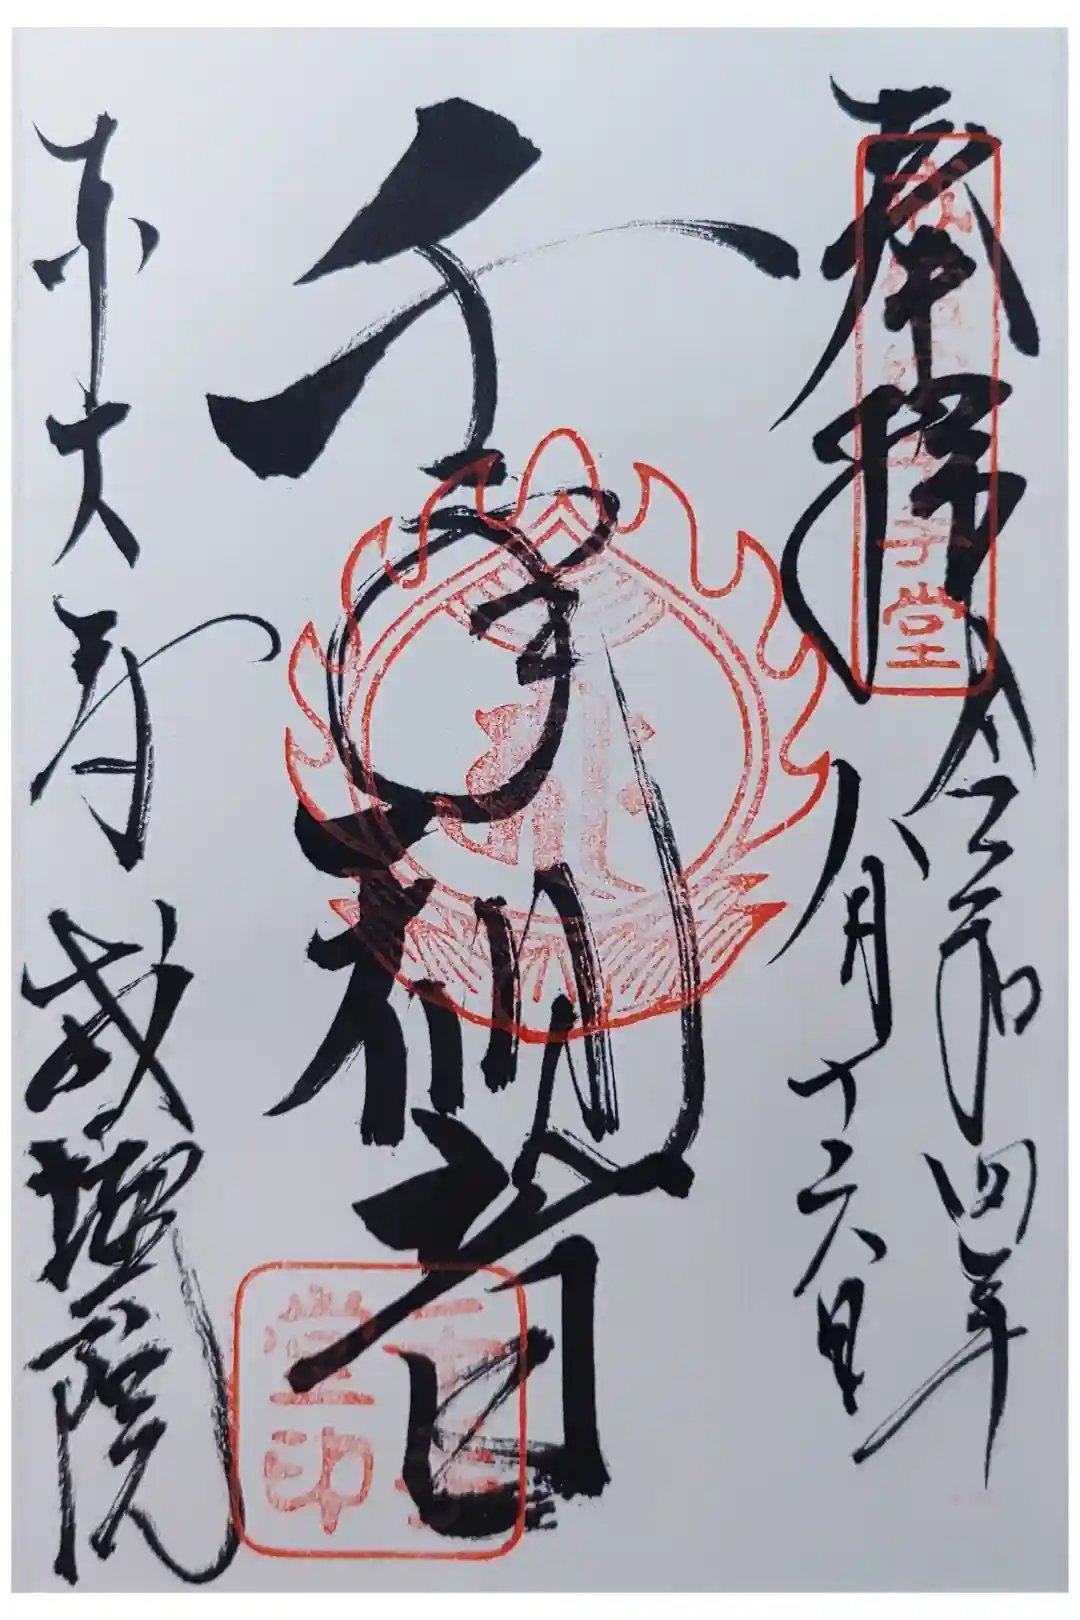 奉拝
令和四年
八月十六日
千手観音
東大寺
戒壇院
千手堂
堂印